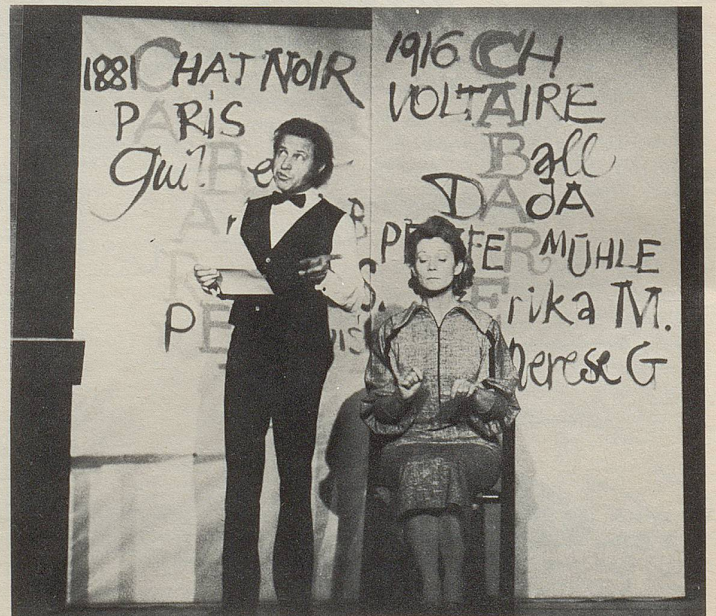 1881 CHAT NOIR
PARIS
Guil
PE
1916 CH
VOLTAIRE
Ball
DADA
MÜHLE
Erika M.
herese G